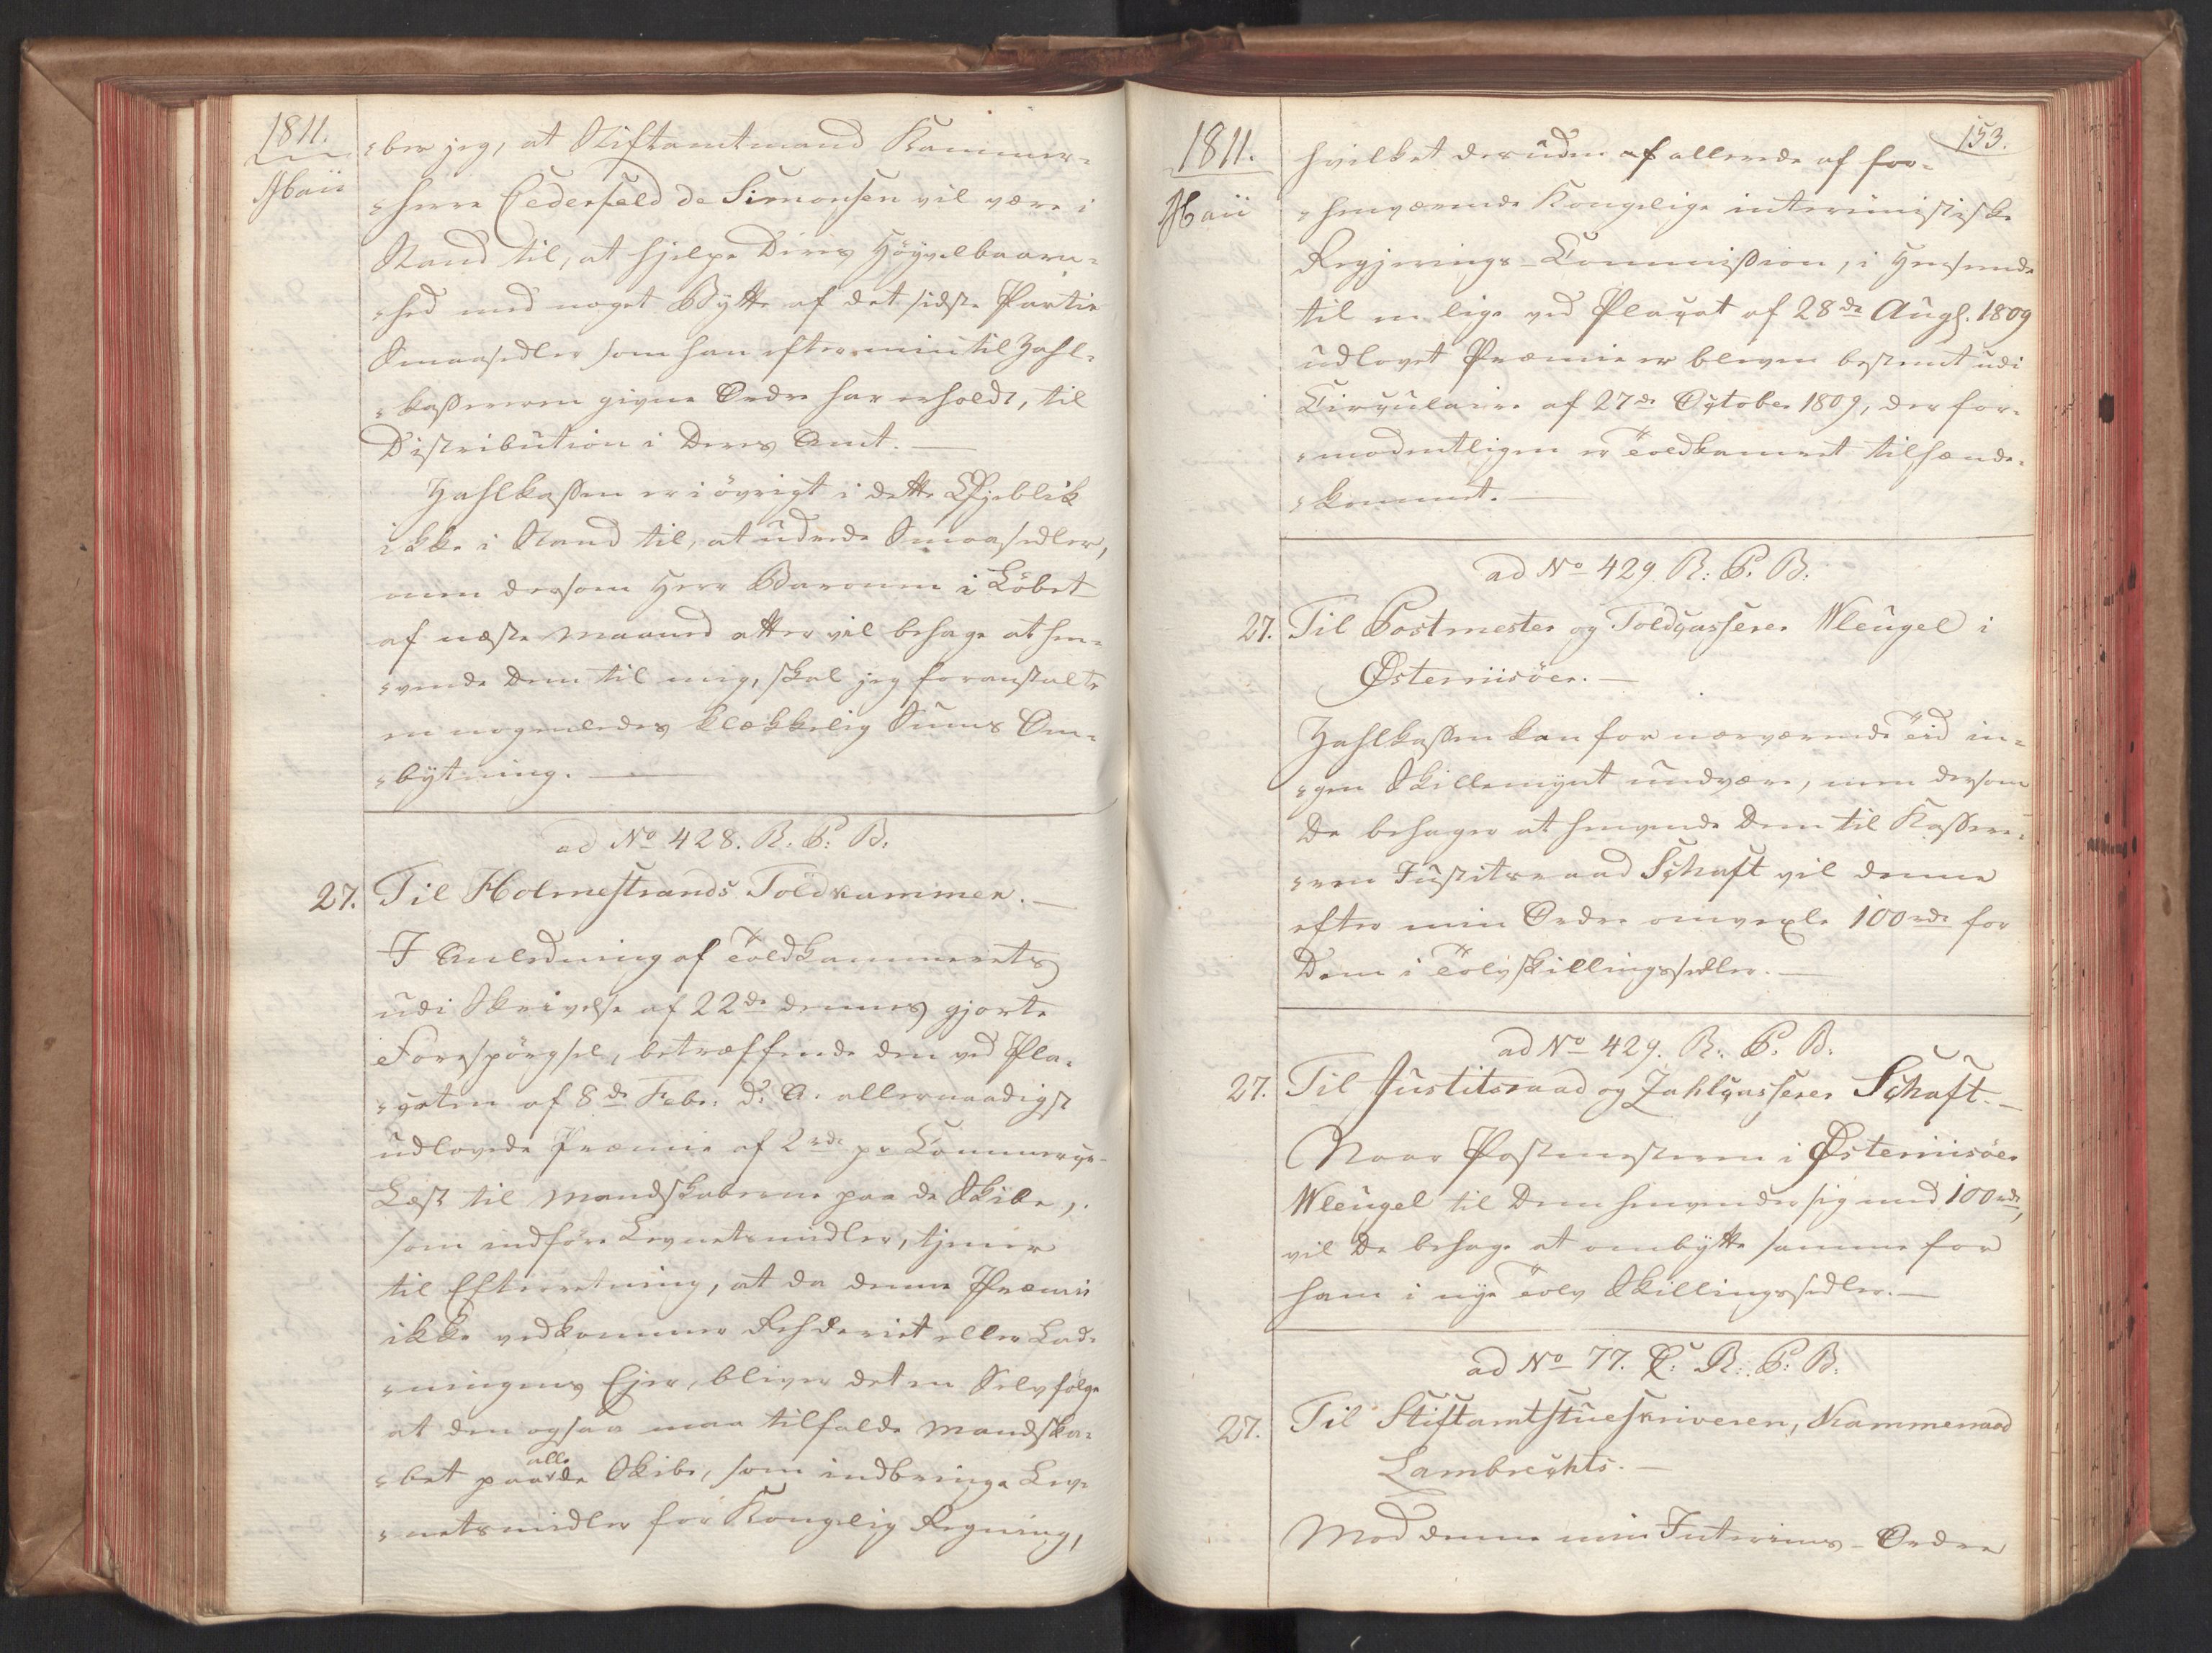 1811.
Maii
"ber jeg, at Stiftamtmand Kammer-
"herre Cederfeld de Simonsen vil være i
Stand til, at hjelpe Deres Höyvelbaarn-
"hed med noget Bytte af det sidste Partie
Smaasedler som han efter min til Zahl-
"kasserern givne Ordre har erholdt, til
Distribution i Deres Amt. —
Zahlkassen er i övrigt i dette Öjeblik
ikke i Stand til, at udrede Smaasedler,
men dersom Herr Baronen i Löbet
af næste Maaned atter vil behage at hen-
"vende Dem til mig, skal jeg foranstalte
en nogenledes klækkelig Sums Om-
"bytning. —
ad No 428. R. P. B.
27. Til Holmestrands Toldkammer. —
I Anledning af Toldkammerets
udi Skrivelse af 22de dennes gjorte
Forespörgsel, betræffende den ved Pla-
"caten af 8de Febr. d. A. allernaadigst
udlovede Præmie af 2rd pr Commerce-
Læst til Mandskaberne paa de Skibe,
som indföre Levnetsmidler, tjener
til Efterretning, at da denne Præmie
ikke vedkommer Rehderiet eller Lad-
"ningens Ejer, bliver det en Selvfölge
at den ogsaa maa tilfalde Mandska-
alle
"bet paa de Skibe, som indbringe Lev-
"netsmidler for Kongelig Regning,
153.
1811.
Maii
hvilket desuden af allerede af for-
"henværende Kongelige interimistiske
Regjerings-Commission, i Henseende
til en lige ved Placat af 28de Augs. 1809
udlovet Præmie er bleven bestemt udi
Circulaire af 27de October 1809, der for-
"modentligen er Toldkamret tilhænde-
"kommet. —
ad No 429. R: P. B:
27. Til Postmester og Toldcasserer Wleugel i
Österriisöer. —
Zahlkassen kan for nærværende Tid in-
"gen Skillemynt undvære, men dersom
De behager at henvende Dem til Kassere-
"ren Justitsraad Schaft vil denne
efter min Ordre omvexle 100rd for
Dem i Tolvskillingssedler. —
ad No 429. R. P. B.
27. Til Justitsraad og Zahlcasserer Schaft. —
Naar Postmesteren i Österriisöer
Wleugel til Dem henvender sig med 100rd,
vil De behage at ombytte samme for
ham i nye Tolv Skillingssedler. —
ad No 77. C: R: P: B:
27. Til Stiftamtstueskriveren, Kammerraad
Lambrechts. —
Mod denne min Interims-Ordre